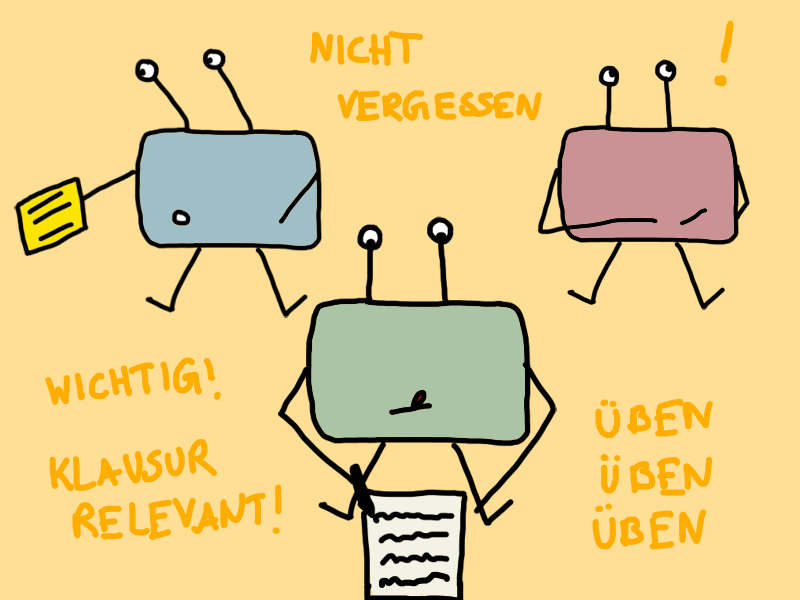 NICHT
VERGESSEN
!
WICHTIG!
KLAUSUR
RELEVANT!
ÜBEN
ÜBEN
ÜBEN